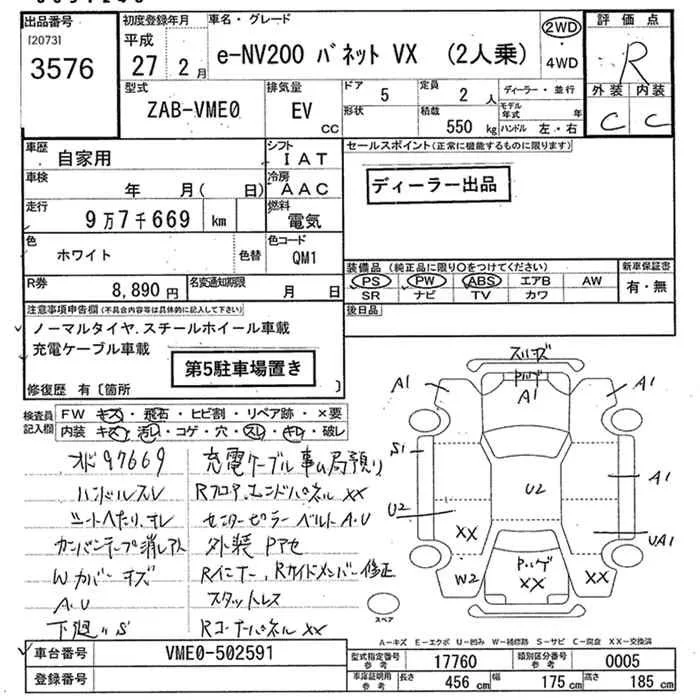 出品番号
[2073]
3576
初度登録年月
平成
27 2月
車名・グレード
e-NV200 バネット VX (2人乗)
2WD
・
4WD
評価点
R
外装 内装
C C
型式
ZAB-VME0
排気量
EV
CC
ドア 5
形状
定員 2 人
積載 550 kg
ディーラー・並行
モデル年式 年
ハンドル 左・右
車歴
自家用
シフト
IAT
車検
年 月( 日)
冷房
AAC
走行
9万7千669 km
燃料
電気
色
ホワイト
色替
色コード
QM1
R券
8,890円
名変通知期限
月 日
セールスポイント(正常に機能するものに限ります)
ディーラー出品
装備品 (純正品に限り○をつけてください)
PS PW ABS エアB AW
SR ナビ TV カワ
新車保証書
有・無
後日品
注意事項申告欄(不具合内容等は具体的に記入して下さい)
ノーマルタイヤ.スチールホイール車載
充電ケーブル車載
第5駐車場置き
修復歴 有〔箇所 〕
検査員記入欄
FW キズ・飛石・ヒビ割・リペア跡・×要
内装 キズ・汚れ・コゲ・穴・スレ・キレ・破レ
97669
ハンドルスレ
シートへたり、スレ
Wカバーキズ
A.U
下廻りS
充電ケーブル事ム局預り
Rフロア、エンドパネル XX
センターピラー ベルトA.U
外装 Pアセ
Rインナー、Rサイドメンバー修正
スタットレス
Rコーナーパネル XX
スリキズ
A1
A1
A1
S1
A1
U2
U2
UA1
XX
W2
XX
XX
スペア
A-キズ E-エクボ U-凹み W-補修跡 S-サビ C-腐食 XX-交換済
車台番号
VME0-502591
登録番号
型式指定番号
参考
17760
類別区分番号
参考
0005
車庫証明用
参考
長さ 456 cm
幅 175 cm
高さ 185 cm